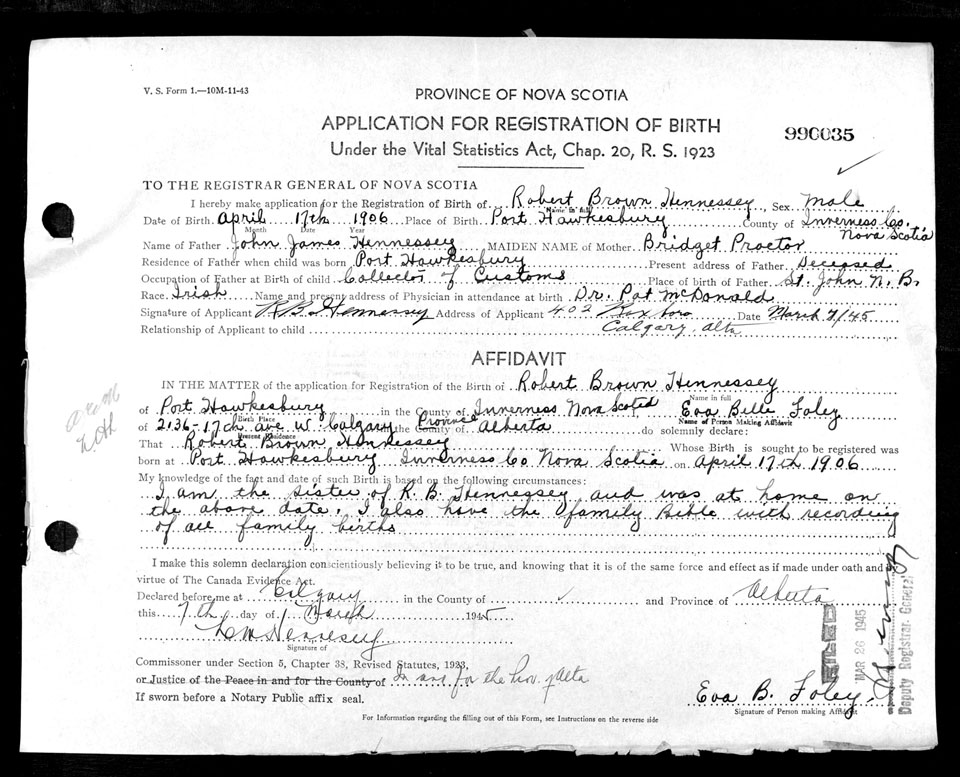 V. S. Form 1.—10M-11-43
PROVINCE OF NOVA SCOTIA
APPLICATION FOR REGISTRATION OF BIRTH
990035
Under the Vital Statistics Act, Chap. 20, R. S. 1923
TO THE REGISTRAR GENERAL OF NOVA SCOTIA
I hereby make application for the Registration of Birth of Robert Brown Hennessey, Sex Male
Name in full
Date of Birth April 17th 1906 Place of Birth Port Hawkesbury County of Inverness Co.
Month Date Year
Nova Scotia
Name of Father John James Hennessey MAIDEN NAME of Mother Bridget Proctor
Residence of Father when child was born Port Hawkesbury Present address of Father Deceased
Occupation of Father at Birth of child Collector of Customs Place of birth of Father St. John N. B.
Race Irish Name and present address of Physician in attendance at birth Dr. Pat McDonald
Signature of Applicant R B Hennessey Address of Applicant 402 Date March 7/45
Calgary, Alta
Relationship of Applicant to child
AFFIDAVIT
IN THE MATTER of the application for Registration of the Birth of Robert Brown Hennessey
Name in full
of Port Hawkesbury in the County of Inverness Nova Scotia Eva Belle Foley
Birth Place Name of Person Making Affidavit
of 2136-17th ave W. Calgary the County of Province Alberta do solemnly declare:
Present Residence
That Robert Brown Hennessey Whose Birth is sought to be registered was
born at Port Hawkesbury Inverness Co Nova Scotia on April 17th 1906
My knowledge of the fact and date of such Birth is based on the following circumstances:
I am the sister of R. B. Hennessey and was at home on
the above date. I also have the family Bible with recording
of all family births
I make this solemn declaration conscientiously believing it to be true, and knowing that it is of the same force and effect as if made under oath and by
virtue of The Canada Evidence Act.
Declared before me at Calgary in the County of and Province of Alberta
this 7th day of March 1945
Signature of
Commissioner under Section 5, Chapter 38, Revised Statutes, 1923,
or Justice of the Peace in and for the County of In and for the Prov. of Alta
If sworn before a Notary Public affix seal.
Eva B. Foley
Signature of Person making Affidavit
For Information regarding the filling out of this Form, see Instructions on the reverse side
MAR 26 1945
Deputy Registrar General